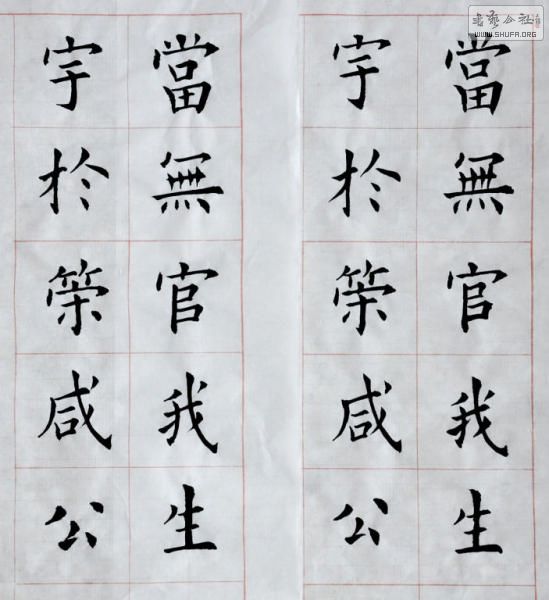 當無官我生
宇於策咸公
當無官我生
宇於策咸公
书艺公社
WWW.SHUFA.ORG